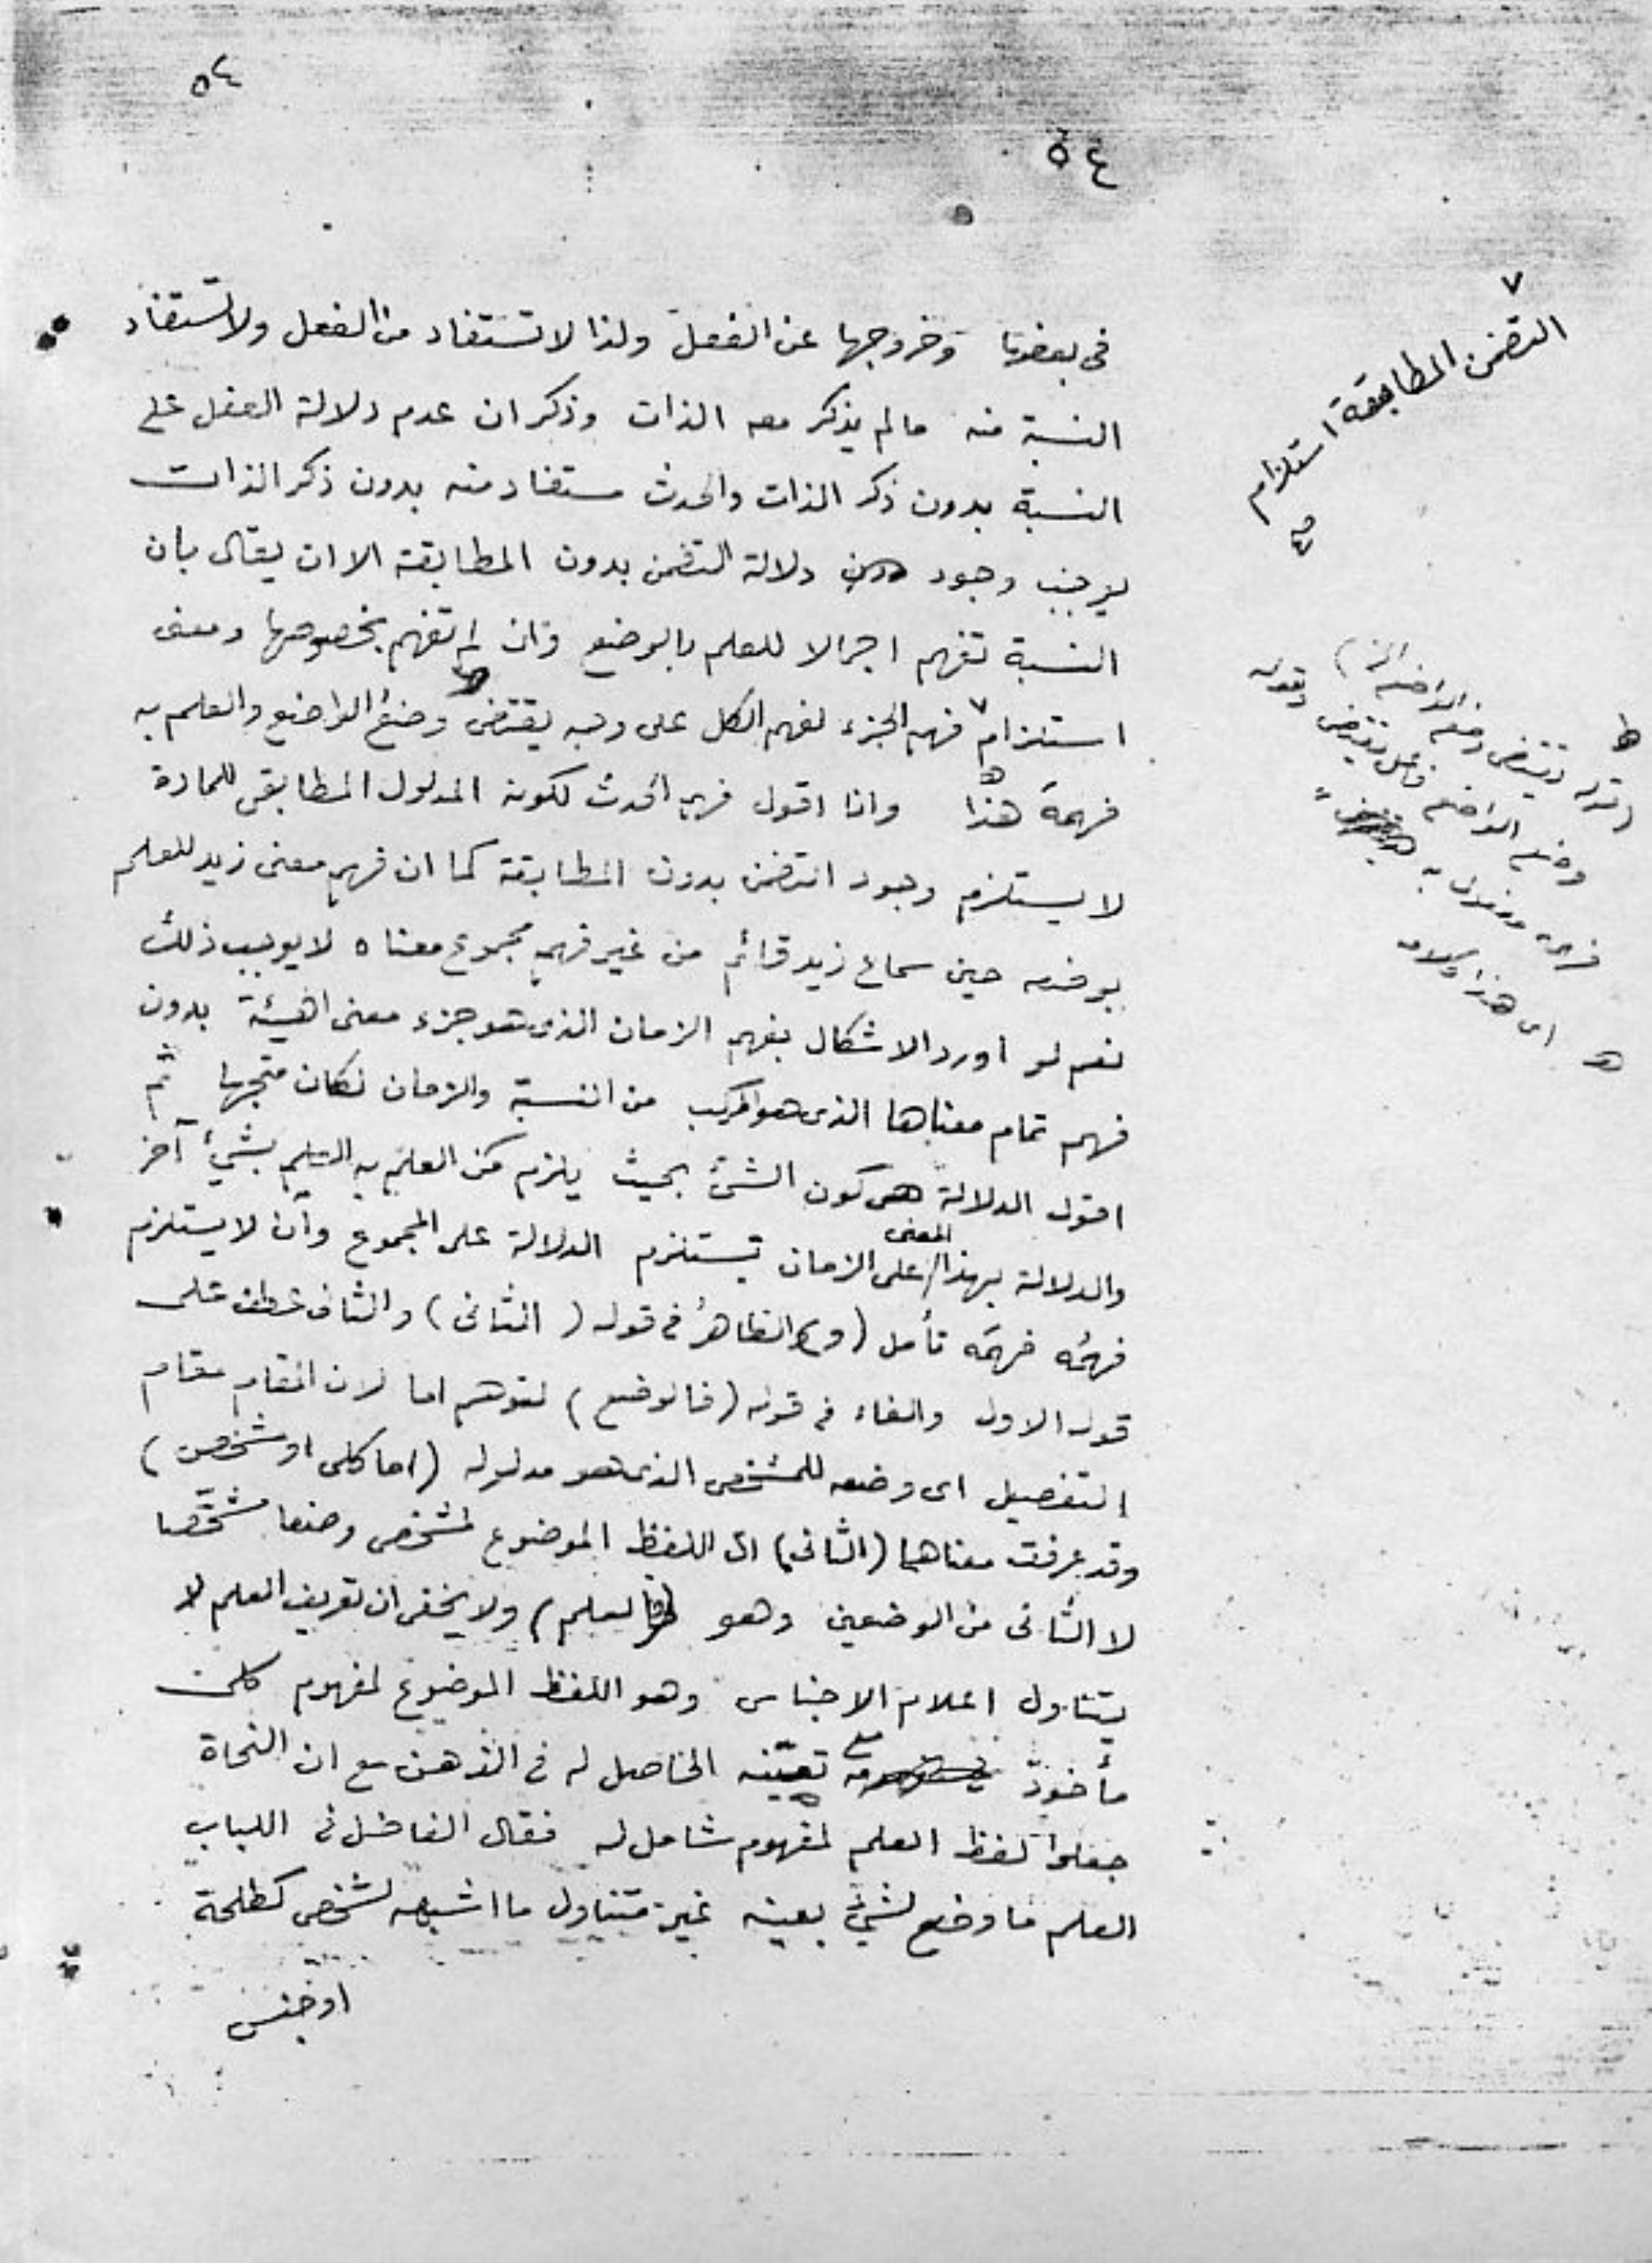 ٥٤
٥٤
فى بعضها وخروجها عن الفعل ولذا لا تستفاد من الفعل ولا تستفاد
النسبة منه مالم يذكر معه الذات وذكر ان عدم دلالة الفعل على
النسبة بدون ذكر الذات والحدث مستفاد منه بدون ذكر الذات
يوجب وجود دلالة التضمن بدون المطابقة الا ان يقال بان
النسبة تفهم اجمالا للعلم بالوضع وان لم تفهم بخصوصها ومعنى
استلزام ٧ فهم الجزء لفهم الكل على وجه يقتضى وضع الواضع والعلم به
فهمه هذا وانا اقول فهم الحدث لكونه المدلول المطابقى للمادة
لا يستلزم وجود التضمن بدون المطابقة كما ان فهم معنى زيد للعلم
بوضعه حين سماع زيد قائم من غير فهم مجموع معناه لا يوجب ذلك
نعم لو اورد الاشكال بفهم الزمان الذى هو جزء معنى الهيئة بدون
فهم تمام معناها الذى هو المركب من النسبة والزمان لكان متجها ثم
اقول الدلالة هى كون الشئ بحيث يلزم من العلم به العلم بشئ آخر
والدلالة بهذا المعنى على الزمان تستلزم الدلالة على المجموع وان لا يستلزم
فهمُه فهمَه تأمل (و) الظاهرُ فى قوله (الثانى) والثانى عطف على
قوله الاول والفاء فى قوله (فالوضع) لتوهم اما لان المقام مقام
التفصيل اى وضعه للمشخص الذى هو مدلوله (اما كلى او شخصى)
وقد عرفت معناهما (الثانى) اى اللفظ الموضوع لمشخص وضعا مشخّصا
لا الثانى من الوضعين وهو (العلم) ولا يخفى ان تعريف العلم لا
يتناول اعلام الاجناس وهو اللفظ الموضوع لمفهوم كلى
مأخوذ مع تعيّنه الحاصل له فى الذهن مع ان النحاة
جعلوا لفظ العلم لمفهوم شامل له فقال الفاضل فى اللباب
العلم ما وضع لشئ بعينه غير متناول ما اشبهه لشخص كطلحة
او جنس
٧
التضمن المطابقة استلزام
وضع الواضع فاعل يقتضى وقوله
فهمه
اى هذا